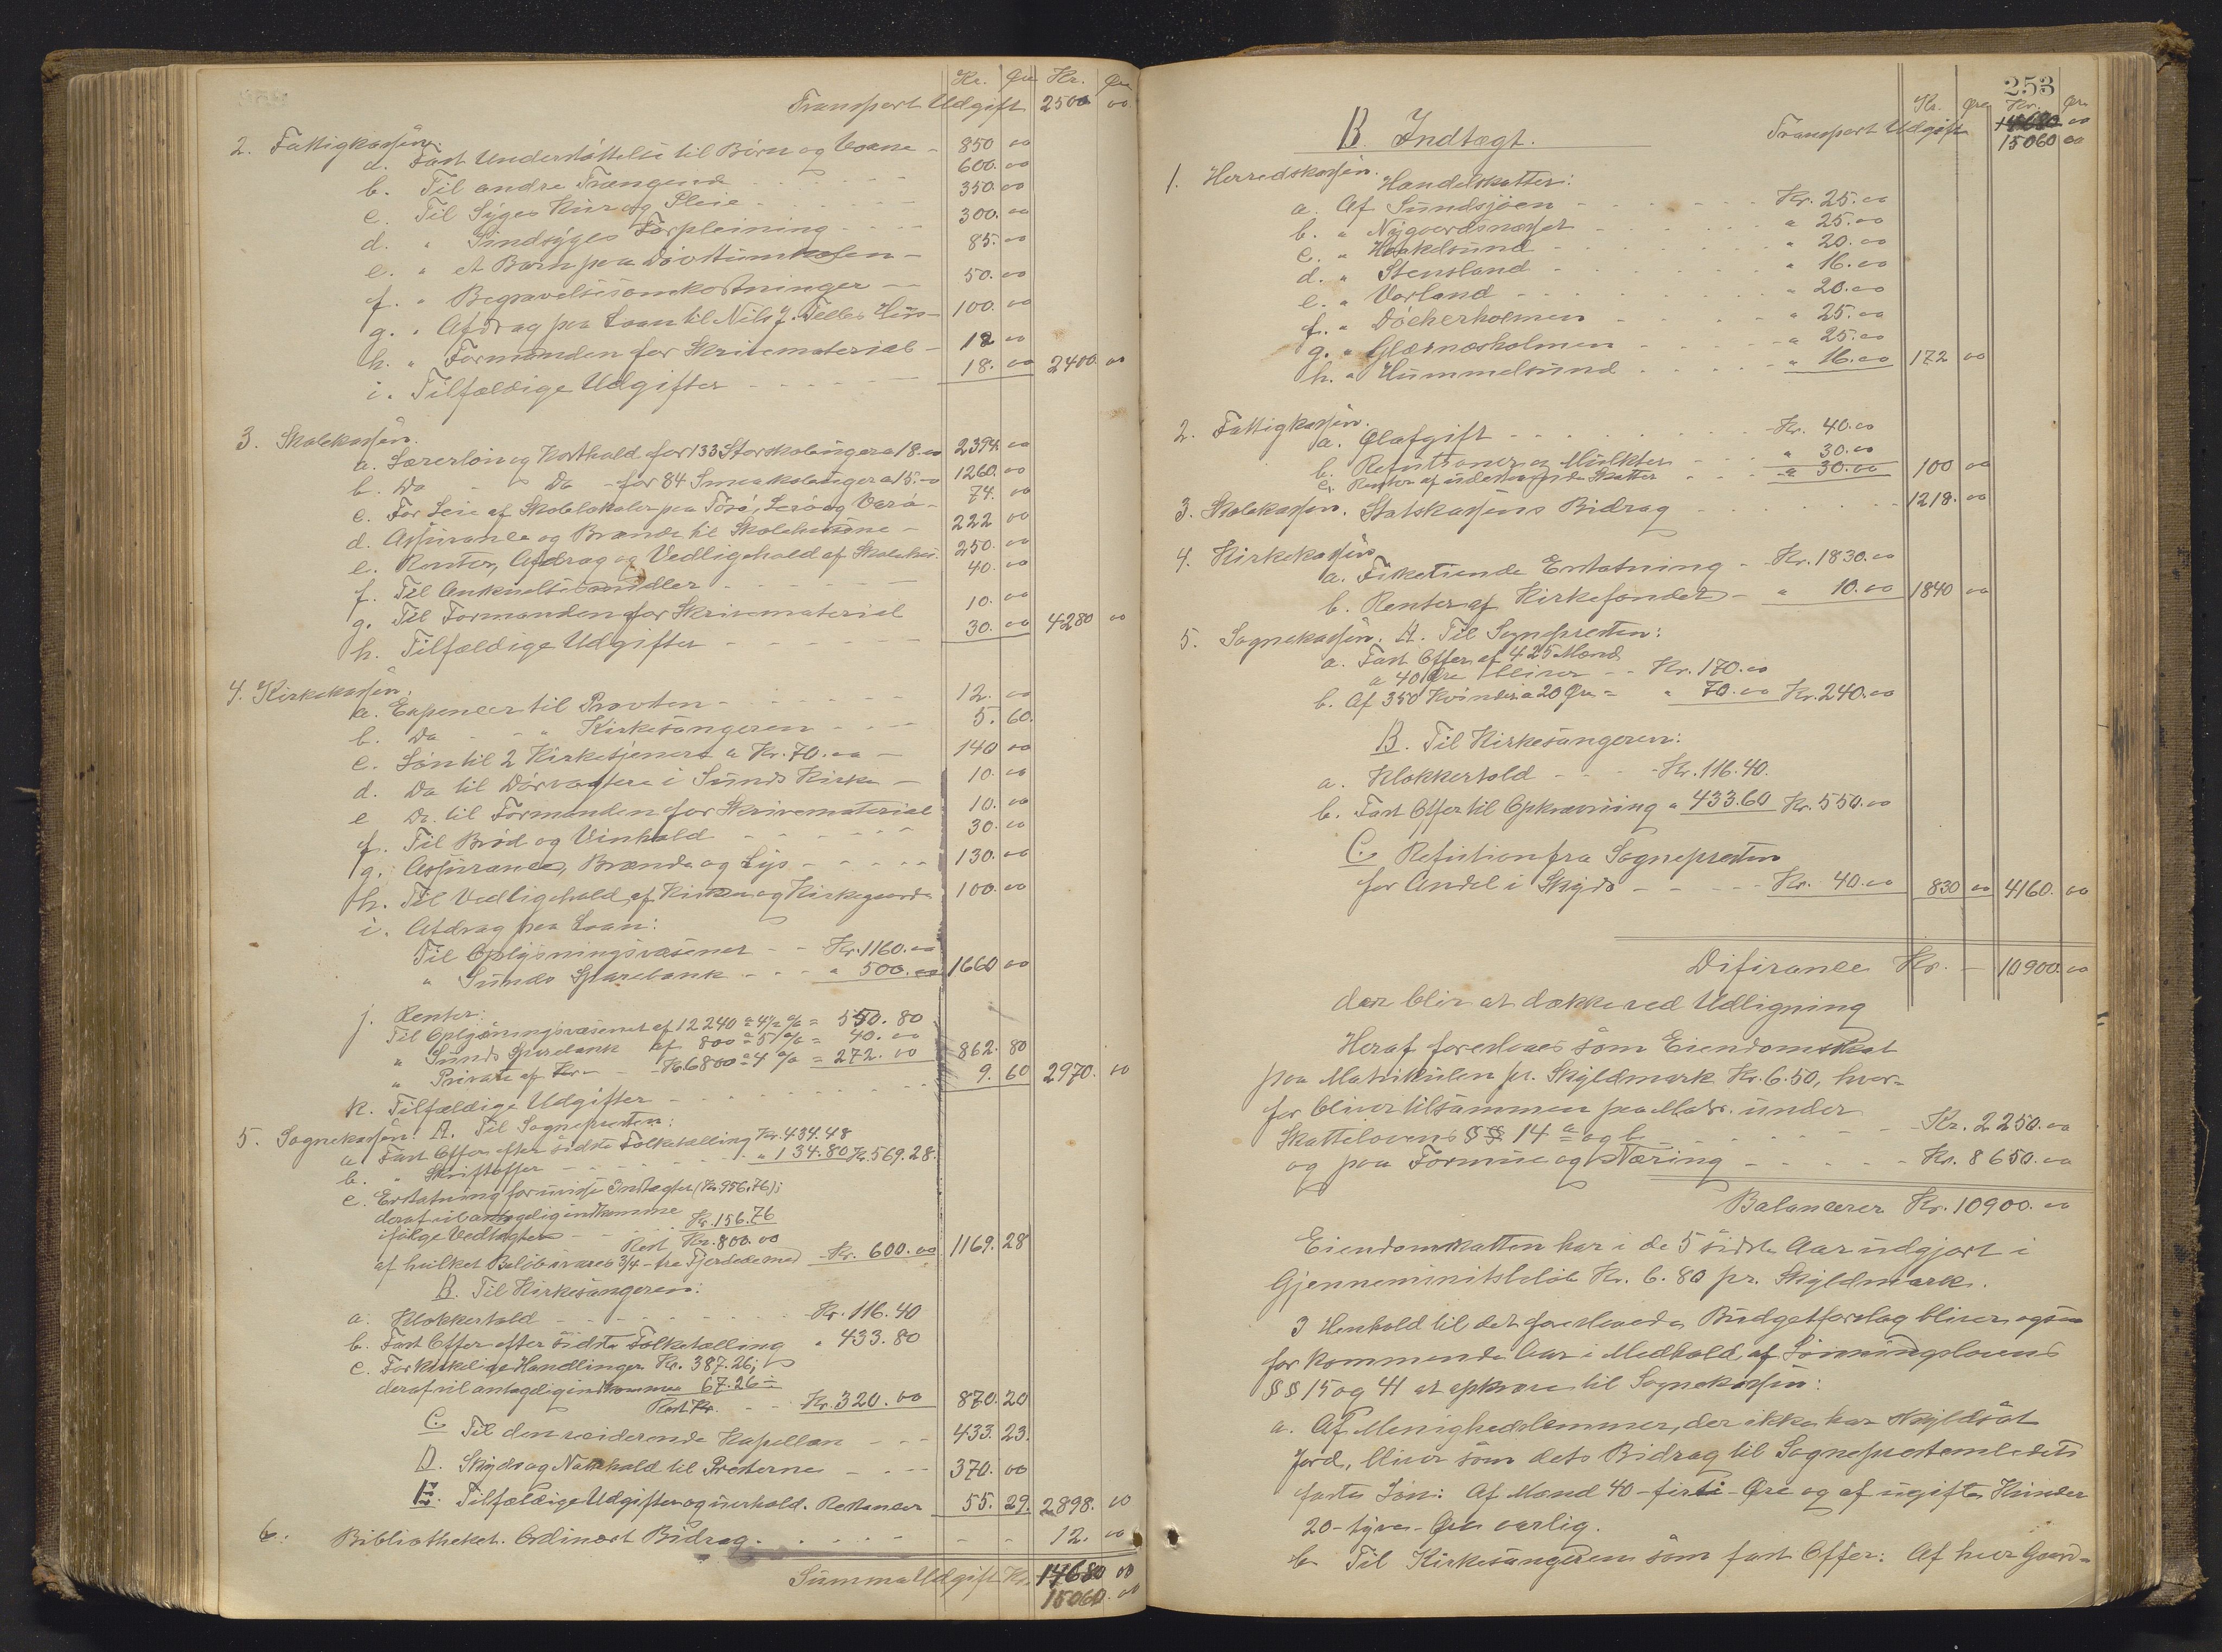 Kr. Øre Kr. Øre
Transport Udgift 2500 00
2. Fattigkassen.
a. Fast Understøttelse til Børn og Voxne - 850 00
b. Til andre Trængende - - - 600. 00
c. Til Syges Kur og Pleie - - - 350. 00
d. " Sindsyges Forpleining - - - 300. 00
e. " et Barn paa Døvstum - 85. 00
f. " Begravelsesomkostninger - - 50. 00
g. " Afdrag paa Laan til Nils J. Telles Hus - 100. 00
h. " Formanden for Skrivematerial - 12 00
i. Tilfældige Udgifter - - - 18. 00 2400. 00
3. Skolekassen.
a. Lærerløn og Kosthold for 133 Storskoleuger a 18.00 2394. 00
b. Do " Do - for 84 Smaaskoleuger a 15.00 1260. 00
c. For Leie af Skolelokaler paa Tösö, Lerö og Verö - 74. 00
d. Assurance og Brænde til Skolehusene - 222 00
e. Renter, Afdrag og Vedligehold af Skolehus 250. 00
f. Til - - - 40. 00
g. Til Formanden for Skrivematerial 10. 00
h. Tilfældige Udgifter - - - 30. 00 4280 00
4. Kirkekassen.
a. Expencer til Provsten - - - 12. 00
b. Do - - " Kirkesangeren - - - 5. 60.
c. Løn til 2 Kirketjenere a Kr. 70.00 - 140 00
d. Do til Dørvogtere i Sunds Kirke - 10. 00
e Do. til Formanden for Skrivematerial 10. 00
f. Til Brød og Vinhold - - - 30. 00
g. Assurance, Brænde og Lys - - - 130. 00
h. Til Vedligehold af Kirken og Kirkegaarde 100. 00
i. Afdrag paa Laan:
Til Oplysningsvæsenet - - Kr. 1160. 00
" Sunds Sparebank - - - " 500. 00 1660 00
j. Renter:
Til Oplysningsvæsenet af 12240 a 4½ % = 550. 80
" Sunds Sparebank af 800 a 5 % = 40. 00
" Private af Kr - - Kr. 6800 a 4 % = 272. 00 862. 80
k. Tilfældige Udgifter - - - 9. 60 2970. 00
5. Sognekassen: A. Til Sognepresten:
a. Fast Offer efter sidste Folketælling Kr. 434. 48
b. " Skriftoffer - - - " 134. 80 Kr. 569. 28.
c. Erstatning for uvisse Indtægter (Kr. 956.76);
deraf vil antagelig indkomme
ifølge Vedtægten - - - Kr. 156. 76
Rest Kr. 800. 00
af hvilket Beløb svares 3/4 - tre Fjerdedele med - Kr. 600. 00 1169. 28
B. Til Kirkesangeren:
a. Klokkertold - - - Kr. 116. 40
b. Fast Offer efter sidste Folketælling " 433. 80
c. For kirkelige Handlinger Kr. 387. 26;
deraf vil antagelig indkomme 67. 26
Rest Kr. - - Kr. 320. 00 870. 20
C. Til den residerende Kapellan - - - 433. 23.
D. Skyds og Nattehold til Presterne - - - 370. 00
E. Tilfældige Udgifter og uerhold. Restancer 55. 29. 2898. 00
6. Bibliotheket. Ordinært Bidrag. - - - 12. 00
Summa Udgift Kr. 14680 00
15060. 00
253
Kr. Øre Kr. Øre
Transport Udgift 14680 00
B. Indtægt. 15060 00
1. Herredskassen.
Handelskatter:
a. Af Sundsjöen - - - Kr. 25. 00
b. " Nygaardsnæsset - - - " 25. 00
c. " Haakelsund - - - " 20. 00
d. " Stensland - - - " 16. 00
e. " Vorland - - - " 20. 00
f. " Döckerholmen - - - " 25. 00
g. " Glæsnæsholmen - - - " 25. 00
h. " Hummelsund - - - " 16. 00 172 00
2. Fattigkassen.
a. Ølafgift - - - Kr. 40. 00
b. Refusioner og Mulkter - - - " 30. 00
c. Renter af Skatter - - " 30. 00 100 00
3. Skolekassen. Statskassens Bidrag - - - 1218. 00
4. Kirkekassen
a. Fisketiende Erstatning - Kr. 1830. 00
b. Renter af Kirkefondet - " 10. 00 1840 00
5. Sognekassen. A. Til Sognepresten:
a. Fast Offer af 425 Mænd
a 40 Øre bliver - - Kr. 170. 00
b. Af 350 Kvinder a 20 Øre = " 70. 00 Kr. 240. 00
B. Til Kirkesangeren:
a. Klokkertold - - - Kr. 116. 40.
b. Fast Offer til Opkrævning " 433. 60 Kr. 550. 00
C. Refusion fra Sognepresten
for Andel i Skyds - - - Kr. 40. 00 830 00 4160. 00
Difirance Kr. - 10900. 00
der blir at dække ved Udligning
Heraf foreslaaes som Eiendomsskat
paa Matrikulen pr. Skyldmark Kr. 6.50, hvor-
for bliver tilsammen paa Matr. under
Skattelovens §§ 14 a og b - - - Kr. 2250. 00
og paa Formue og Næring - - - Kr. 8650. 00
Balancerer Kr. 10900. 00
Eiendomskatten har i de 5 sidste Aar udgjort i
Gjennemsnitsbeløb Kr. 6. 80 pr. Skyldmark.
I Henhold til det foreslaaede Budgetforslag bliver ogsaa
for kommende Aar i Medhold af Lønningslovens
§§ 15 og 41 at opkræve til Sognekassen:
a. Af Menighedslemmer, der ikke har skyldsat
Jord, bliver som dets Bidrag til Sogneprestembedets
faste Løn: Af Mænd 40 - firti - Øre og af ugifte Kvinder
20 - tyve - Øre aarlig.
b Til Kirkesangeren som fast Offer: Af hver Gaard-